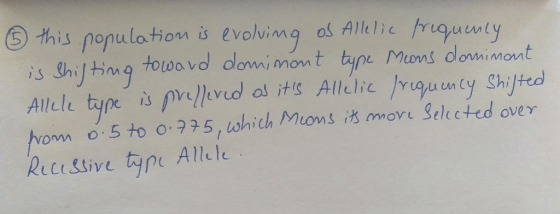 ⑤ this population is evolving as Allelic frequency
is shifting toward dominant type Means dominant
Allele type is preffered as it's Allelic frequency Shifted
from 0.5 to 0.775, which Means its more Selected over
Recessive type Allele.